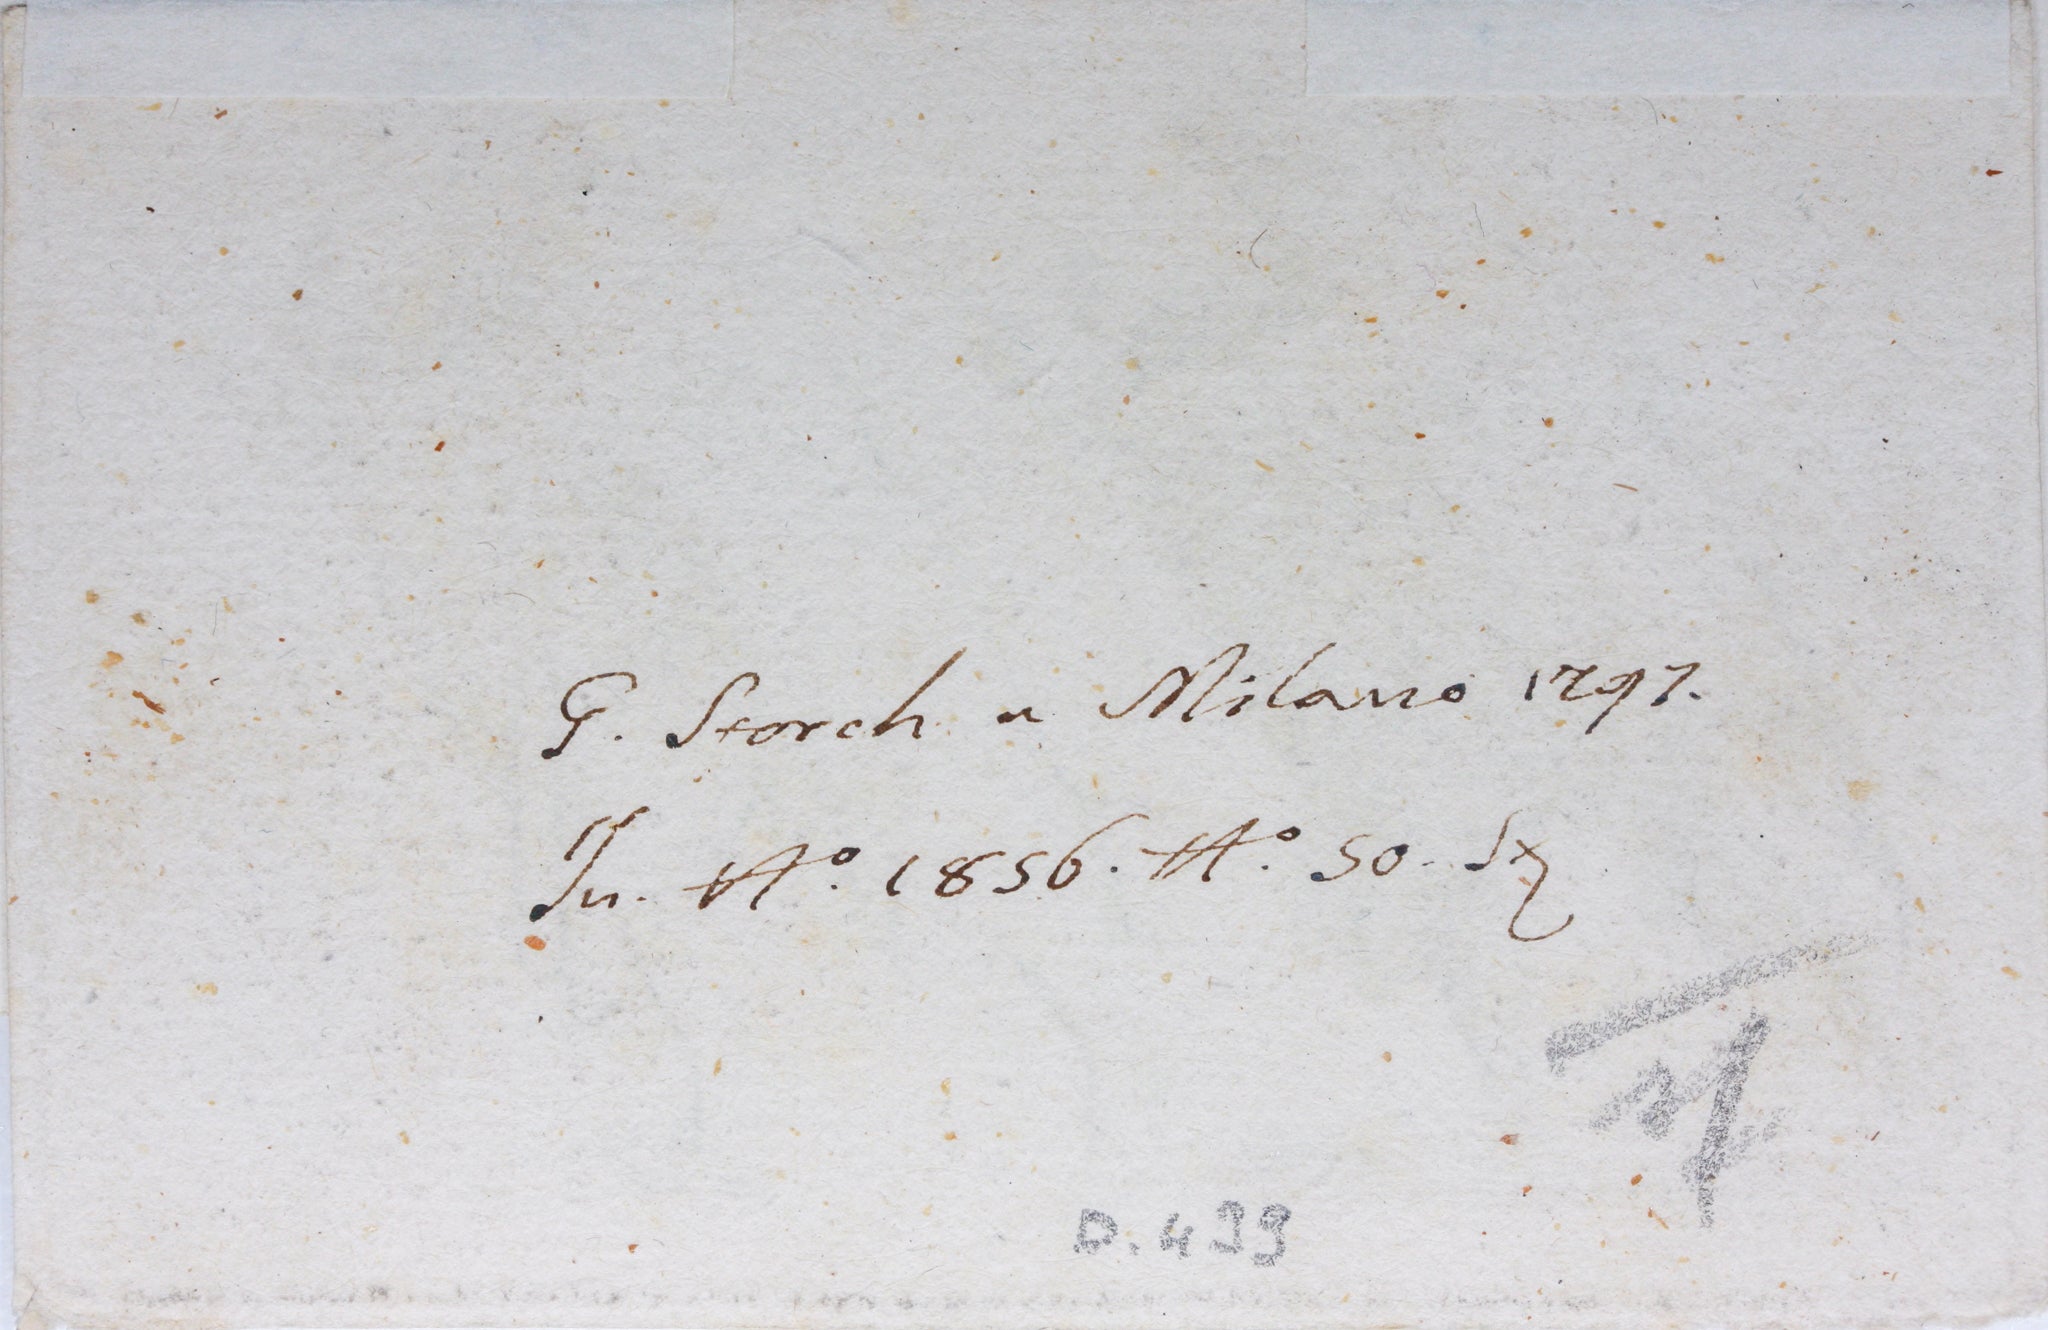 G. Storch a Milano 1797.
In. No. 1856. No. 50.
D. 433